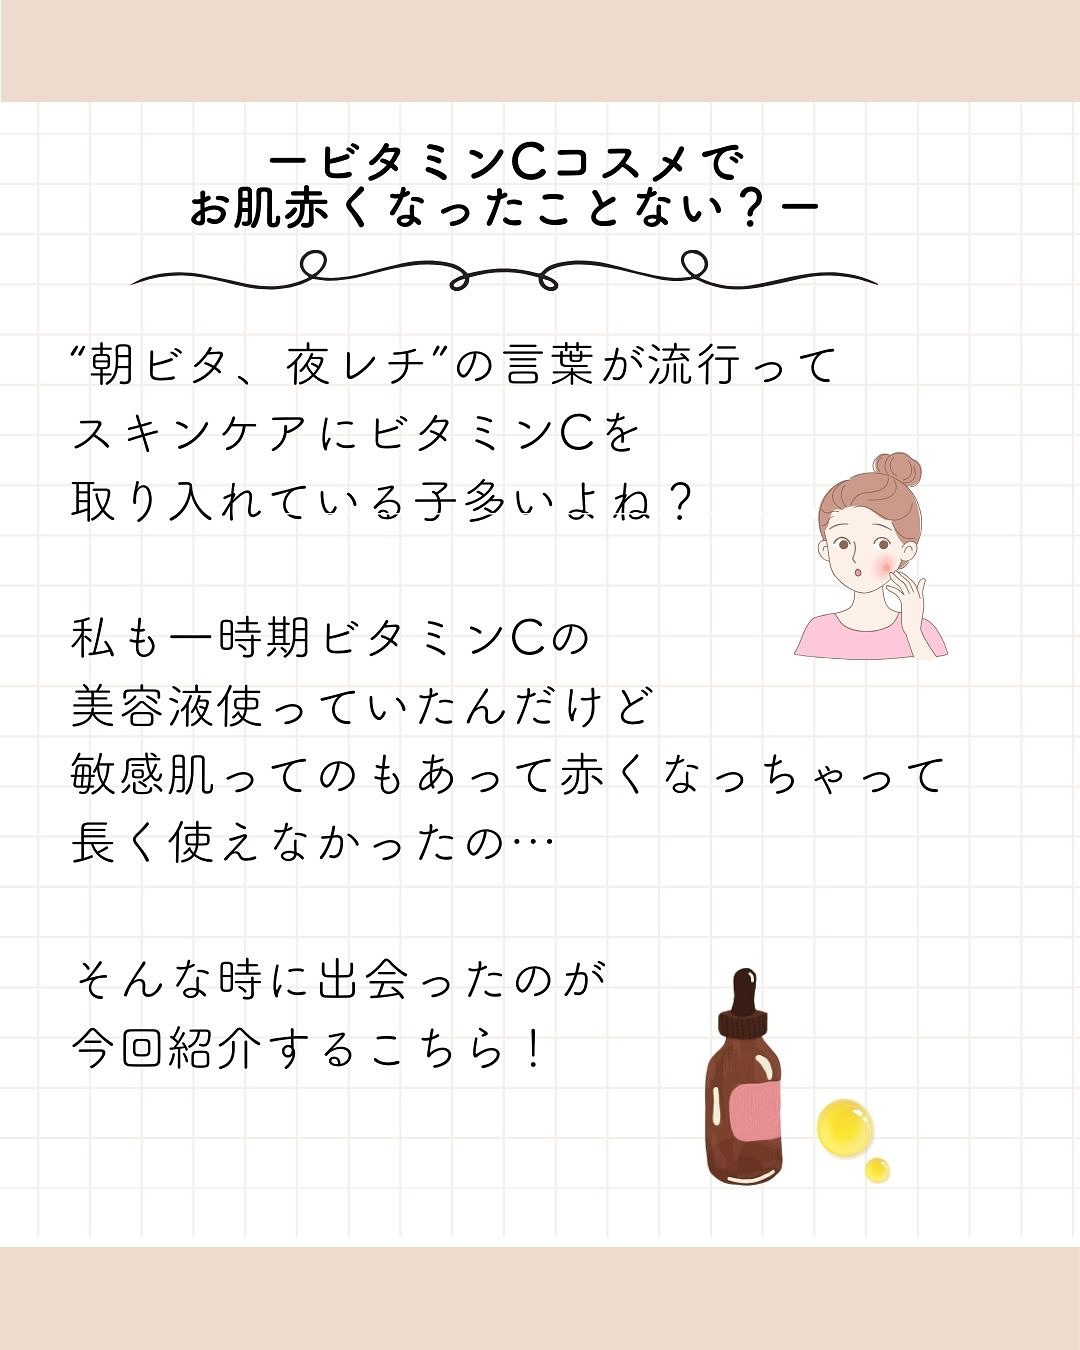 ービタミンCコスメで
お肌赤くなったことない？ー
“朝ビタ、夜レチ”の言葉が流行って
スキンケアにビタミンCを
取り入れている子多いよね？
私も一時期ビタミンCの
美容液使っていたんだけど
敏感肌ってのもあって赤くなっちゃって
長く使えなかったの…
そんな時に出会ったのが
今回紹介するこちら！